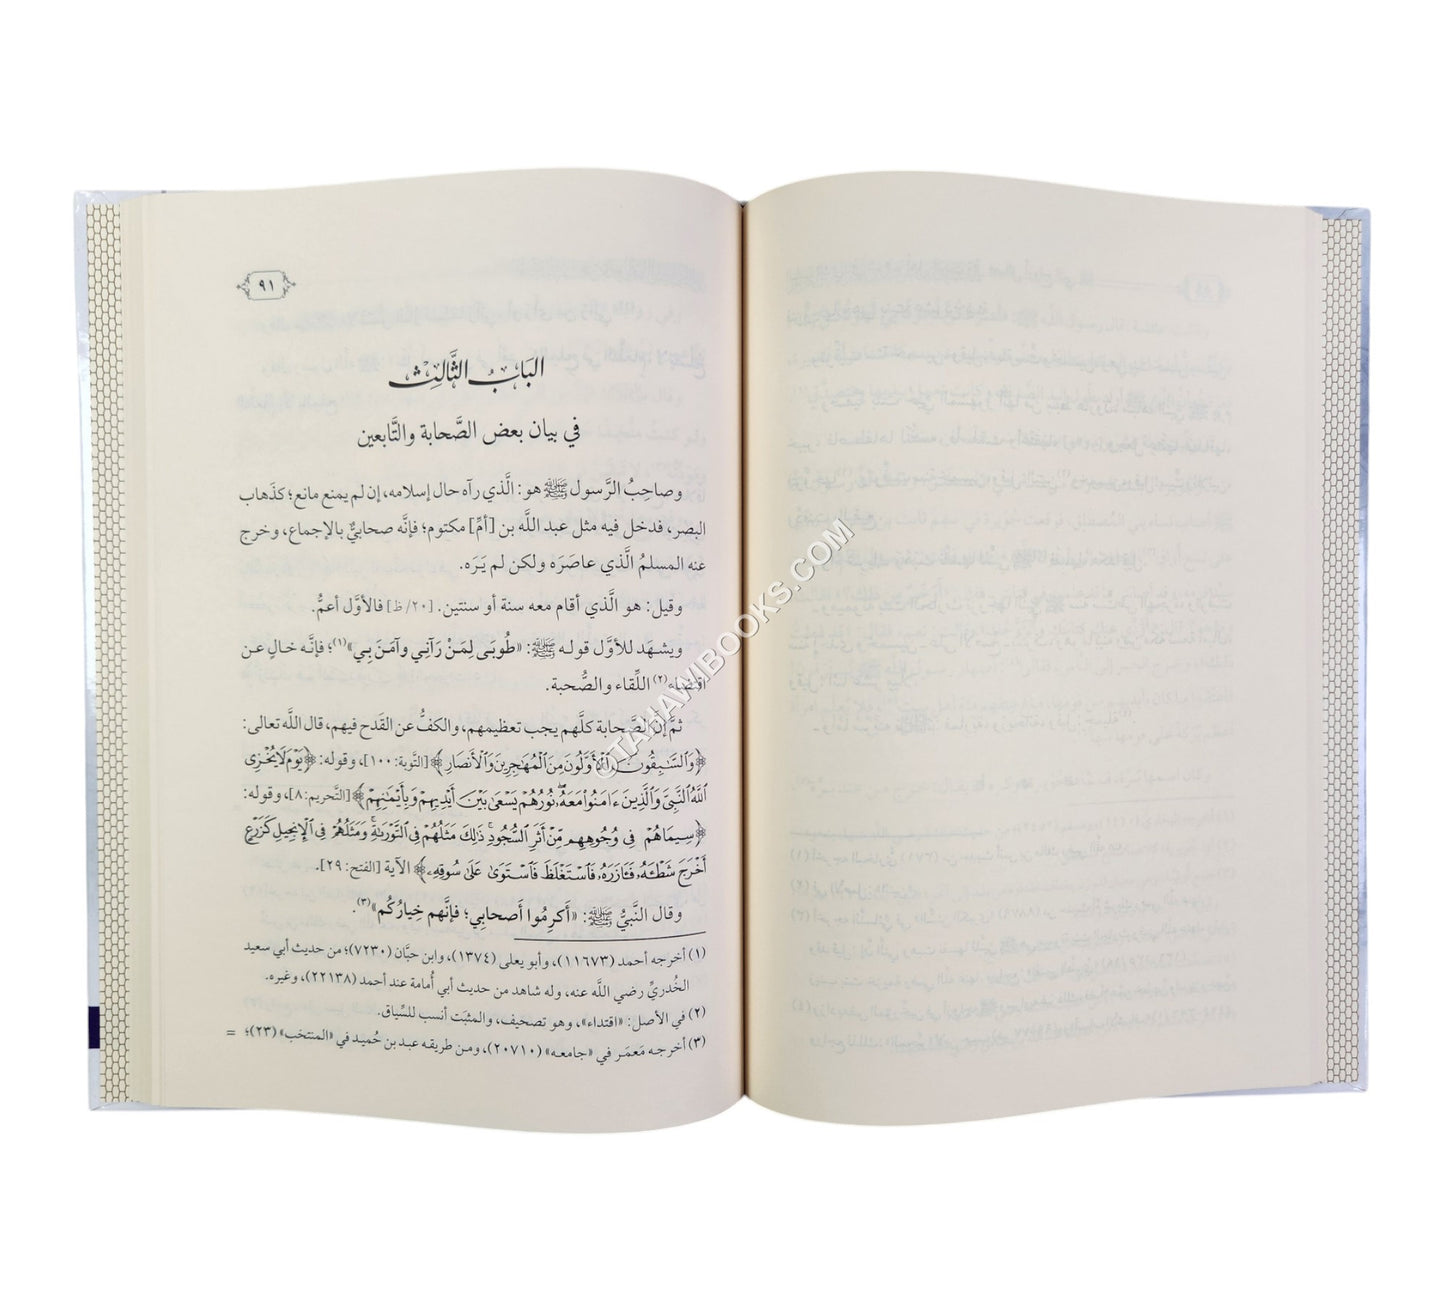 ٩١
البَابُ الثَّالِث
في بيان بعض الصَّحابة والتَّابعين
وصاحِبُ الرَّسول ﷺ هو: الَّذي رآه حال إسلامه، إن لم يمنع مانع؛ كذَهاب
البصر، فدخل فيه مثل عبد اللَّه بن [أمِّ] مكتوم؛ فإنَّه صحابيٌّ بالإجماع، وخرج
عنه المسلمُ الَّذي عاصَرَه ولكن لم يَرَه.
وقيل: هو الَّذي أقام معه سنة أو سنتين. [٢٠/ ظ] فالأوَّل أعمُّ.
ويشهَد للأوَّل قوله ﷺ: «طُوبَى لِمَنْ رَآنِي وآمَنَ بِي»(١)؛ فإنَّه خالٍ عن
اقتضاء(٢) اللِّقاء والصُّحبة.
ثمَّ إن الصَّحابة كلَّهم يجب تعظيمهم، والكفُّ عن القَدح فيهم، قال اللَّه تعالى:
﴿وَٱلسَّـٰبِقُونَ ٱلْأَوَّلُونَ مِنَ ٱلْمُهَـٰجِرِينَ وَٱلْأَنصَارِ﴾ [التَّوبة: ١٠٠]، وقوله: ﴿يَوْمَ لَا يُخْزِى
ٱللَّهُ ٱلنَّبِىَّ وَٱلَّذِينَ ءَامَنُوا۟ مَعَهُۥ ۖ نُورُهُمْ يَسْعَىٰ بَيْنَ أَيْدِيهِمْ وَبِأَيْمَـٰنِهِمْ﴾ [التَّحريم: ٨]، وقوله:
﴿سِيمَاهُمْ فِى وُجُوهِهِم مِّنْ أَثَرِ ٱلسُّجُودِ ۚ ذَٰلِكَ مَثَلُهُمْ فِى ٱلتَّوْرَىٰةِ ۚ وَمَثَلُهُمْ فِى ٱلْإِنجِيلِ كَزَرْعٍ
أَخْرَجَ شَطْـَٔهُۥ فَـَٔازَرَهُۥ فَٱسْتَغْلَظَ فَٱسْتَوَىٰ عَلَىٰ سُوقِهِۦ﴾ الآية [الفتح: ٢٩].
وقال النَّبيُّ ﷺ: «أَكرِمُوا أَصحابِي؛ فإنَّهم خِيارُكُم»(٣).
(١) أخرجه أحمد (١١٦٧٣)، وأبو يعلى (١٣٧٤)، وابن حبَّان (٧٢٣٠)؛ من حديث أبي سعيد
الخُدريِّ رضي اللَّه عنه، وله شاهد من حديث أبي أُمامة عند أحمد (٢٢١٣٨)، وغيره.
(٢) في الأصل: «اقتداء»، وهو تصحيف، والمثبَت أنسب للسِّياق.
(٣) أخرجه مَعمَر في «جامعه» (٢٠٧١٠)، ومن طريقه عبد بن حُميد في «المنتخب» (٢٣)؛ =
©TAHAWIBOOKS.COM